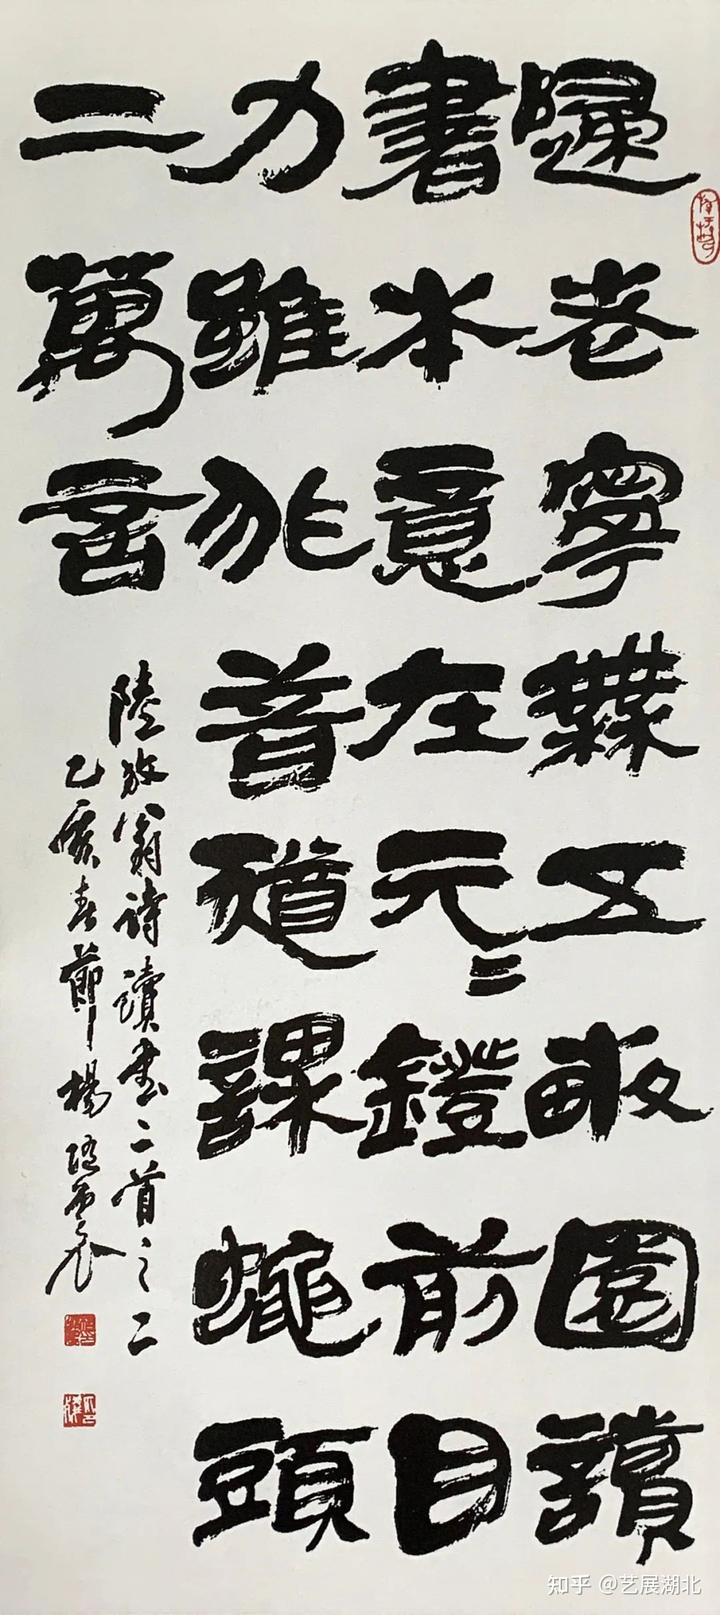 歸老寧無五畝園讀
書本意在元〻鐙前目
力雖非昔猶課蠅頭
二萬言
陸放翁詩讀書二首之二
乙亥春節楊
知乎 @艺展湖北